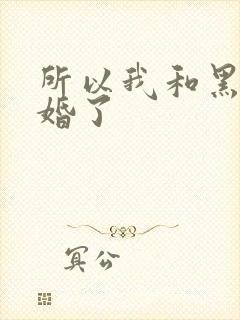 所以我和黑
婚了
冥公